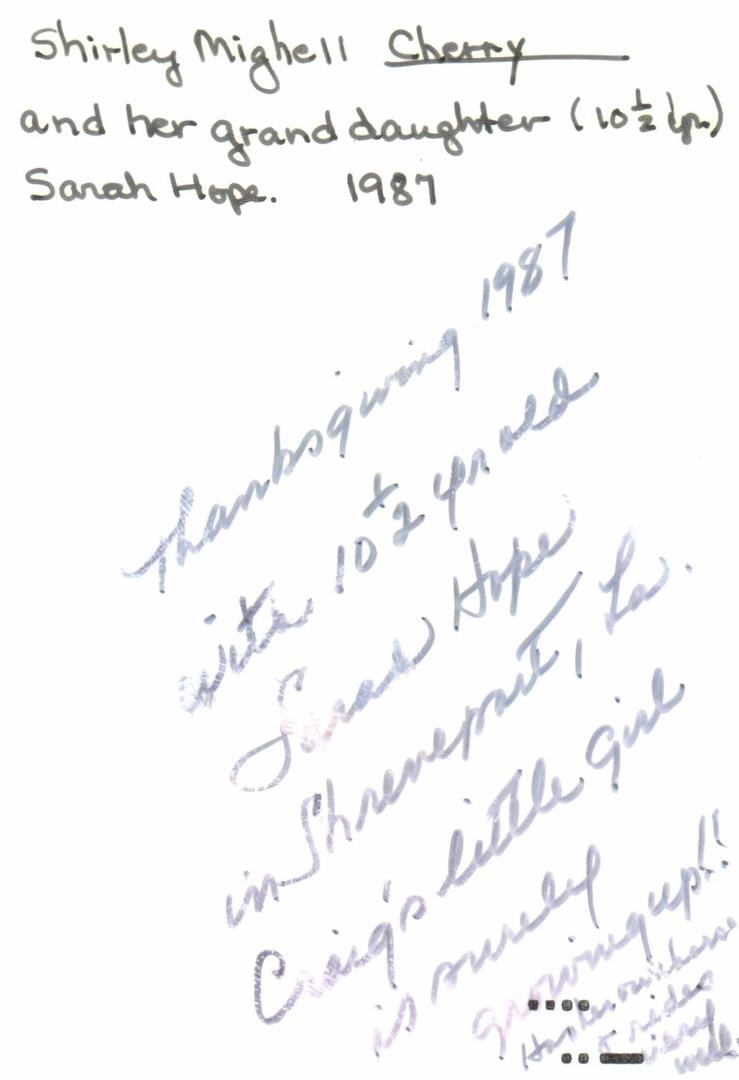 Shirley Mighell Cherry
and her granddaughter (10 1/2 yr.)
Sarah Hope. 1987
Thanksgiving 1987
with 10 1/2 yr old
Sarah Hope
in Shreveport, La.
Craig's little girl
is surely
growing up!!
Has her own horse
& rides
very
well.